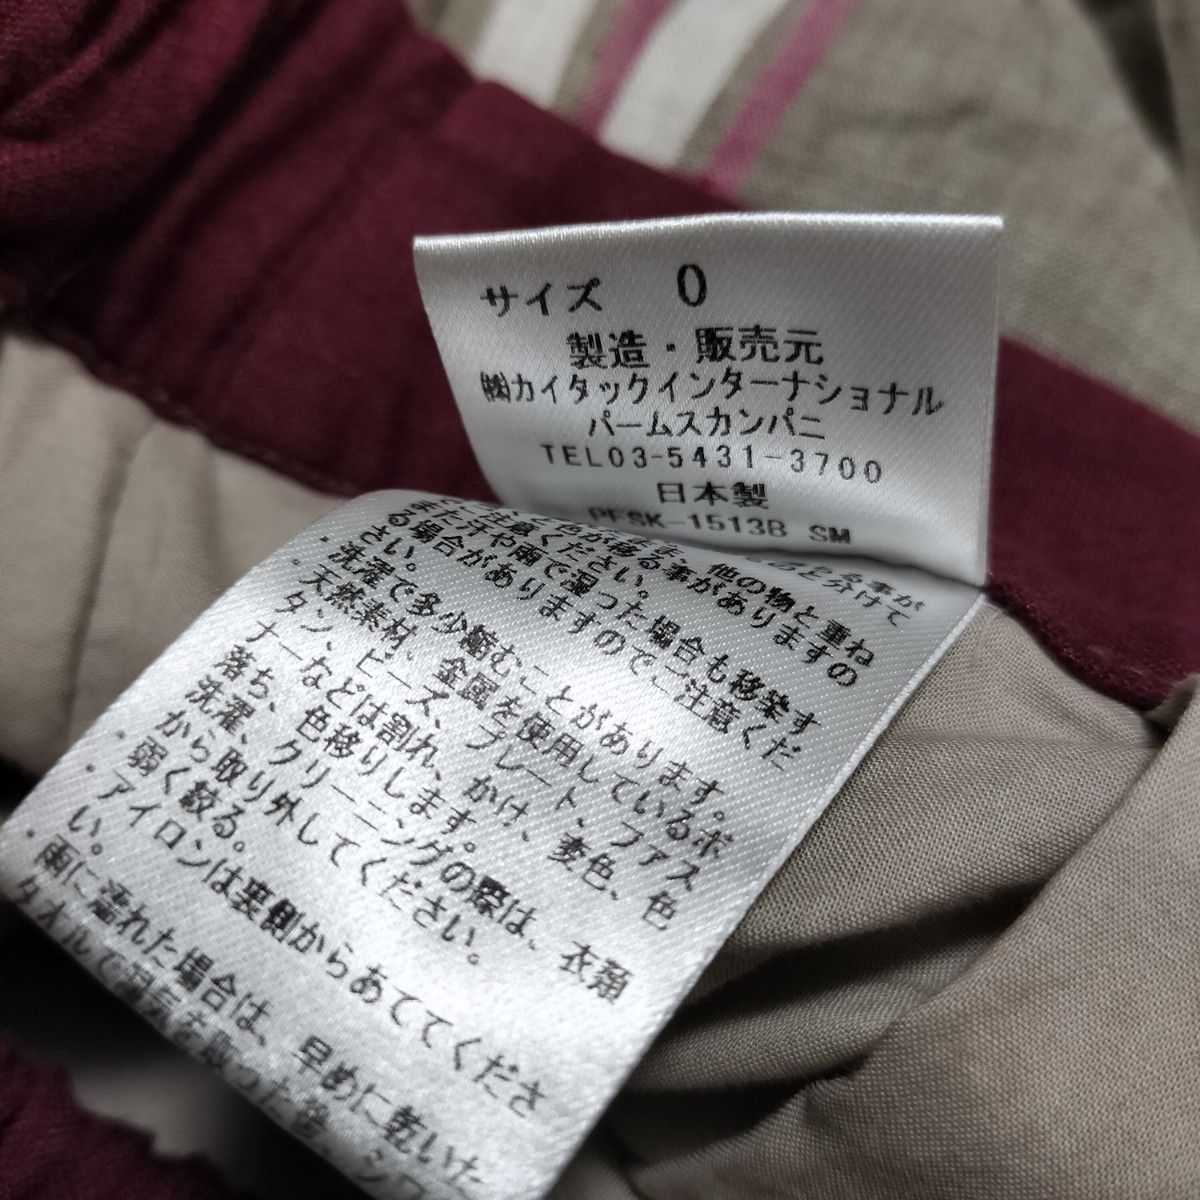 サイズ 0
製造・販売元
㈱カイタックインターナショナル
パームスカンパニ
TEL03-5431-3700
日本製
PFSK-1513B SM
と分けて
他の物と重ね
色が移る事がありますの
ご注意ください。
また汗や雨で湿った場合も移染す
る場合がありますのでご注意くだ
さい。
・洗濯で多少縮むことがあります。
・天然素材、金属を使用しているボ
タン、ビーズ、プレート、ファス
ナーなどは割れ、かけ、変色、色
落ち、色移りします。
洗濯、クリーニングの際は、衣類
から取り外してください。
・弱く絞る。
・アイロンは裏側からあててくださ
い。
・雨に濡れた場合は、早めに乾いた
タオルで